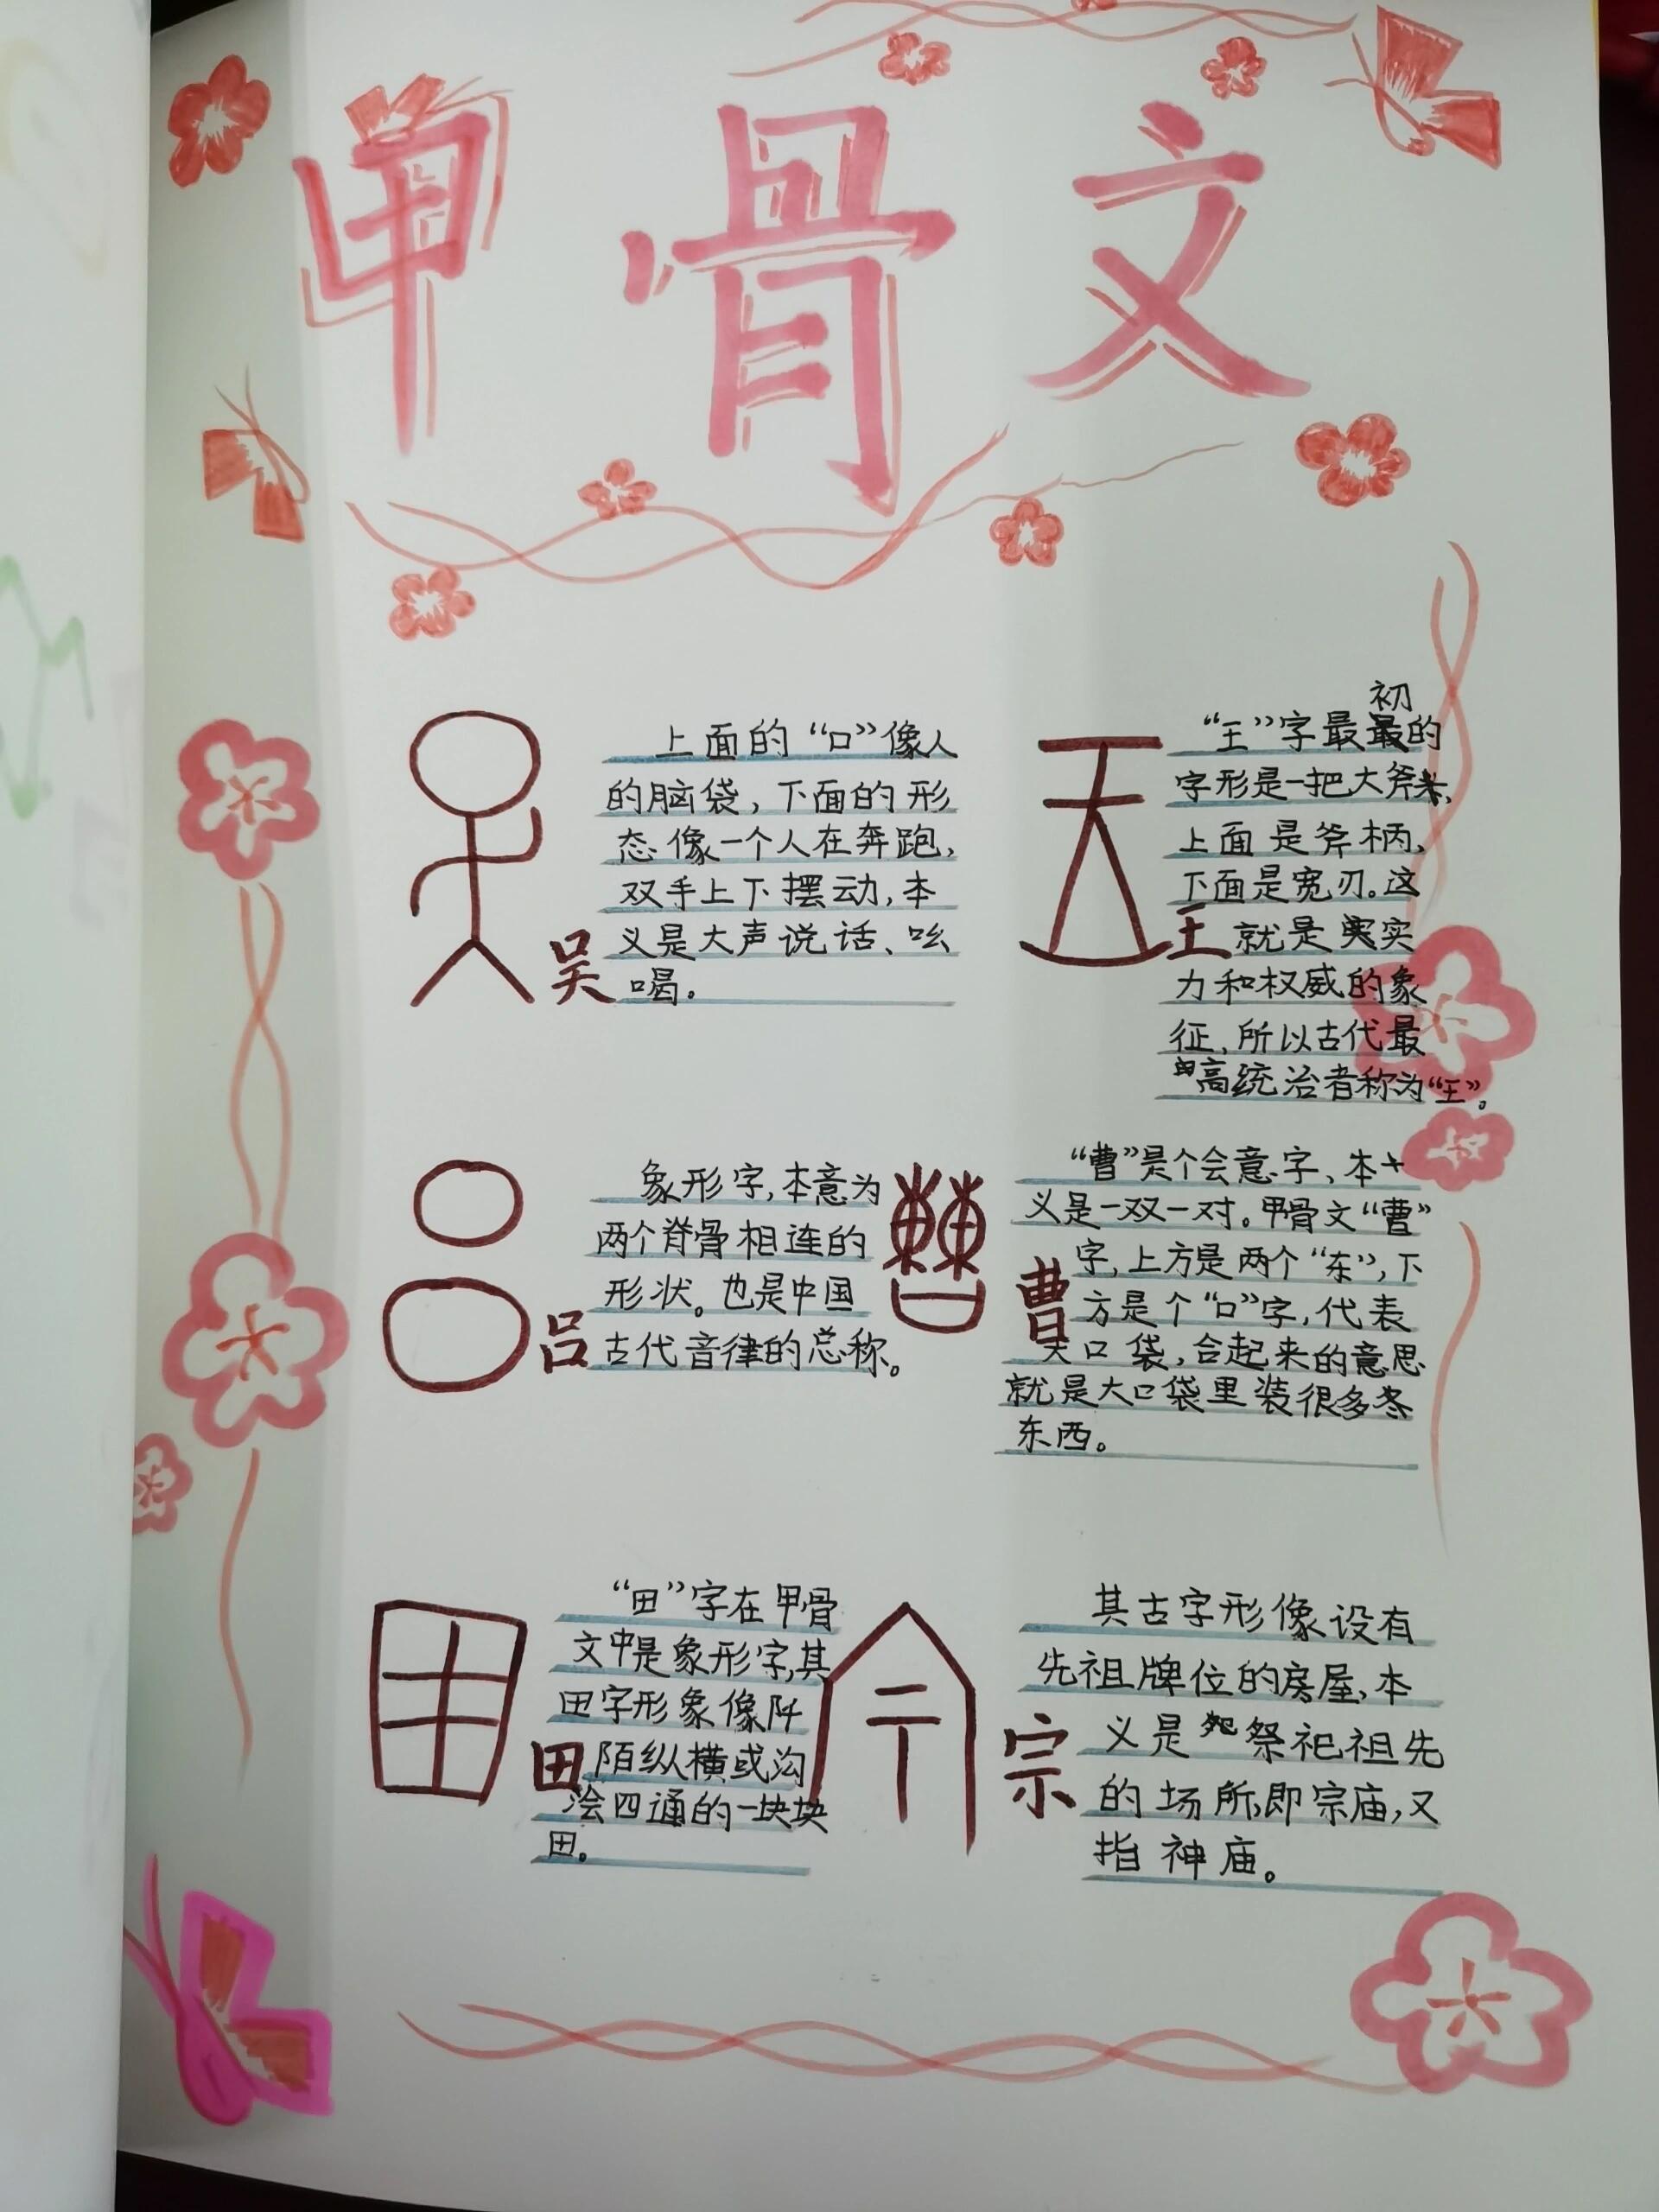 甲骨文
上面的“口”像人
的脑袋，下面的形
态像一个人在奔跑，
双手上下摆动，本
义是大声说话、吆
喝。
吴
初
“王”字最最的
字形是一把大斧，
上面是斧柄，
下面是宽刃。这
就是实
力和权威的象
征，所以古代最
高统治者称为“王”。
王
象形字，本意为
两个脊骨相连的
形状。也是中国
古代音律的总称。
吕
“曹”是个会意字、本
义是一双一对。甲骨文“曹”
字，上方是两个“东”，下
方是个“口”字，代表
大口袋，合起来的意思
就是大口袋里装很多
东西。
曹
“田”字在甲骨
文中是象形字，其
田字形象像阡
陌纵横或沟
浍四通的一块块
田。
田
其古字形像设有
先祖牌位的房屋，本
义是祭祀祖先
的场所，即宗庙，又
指神庙。
宗